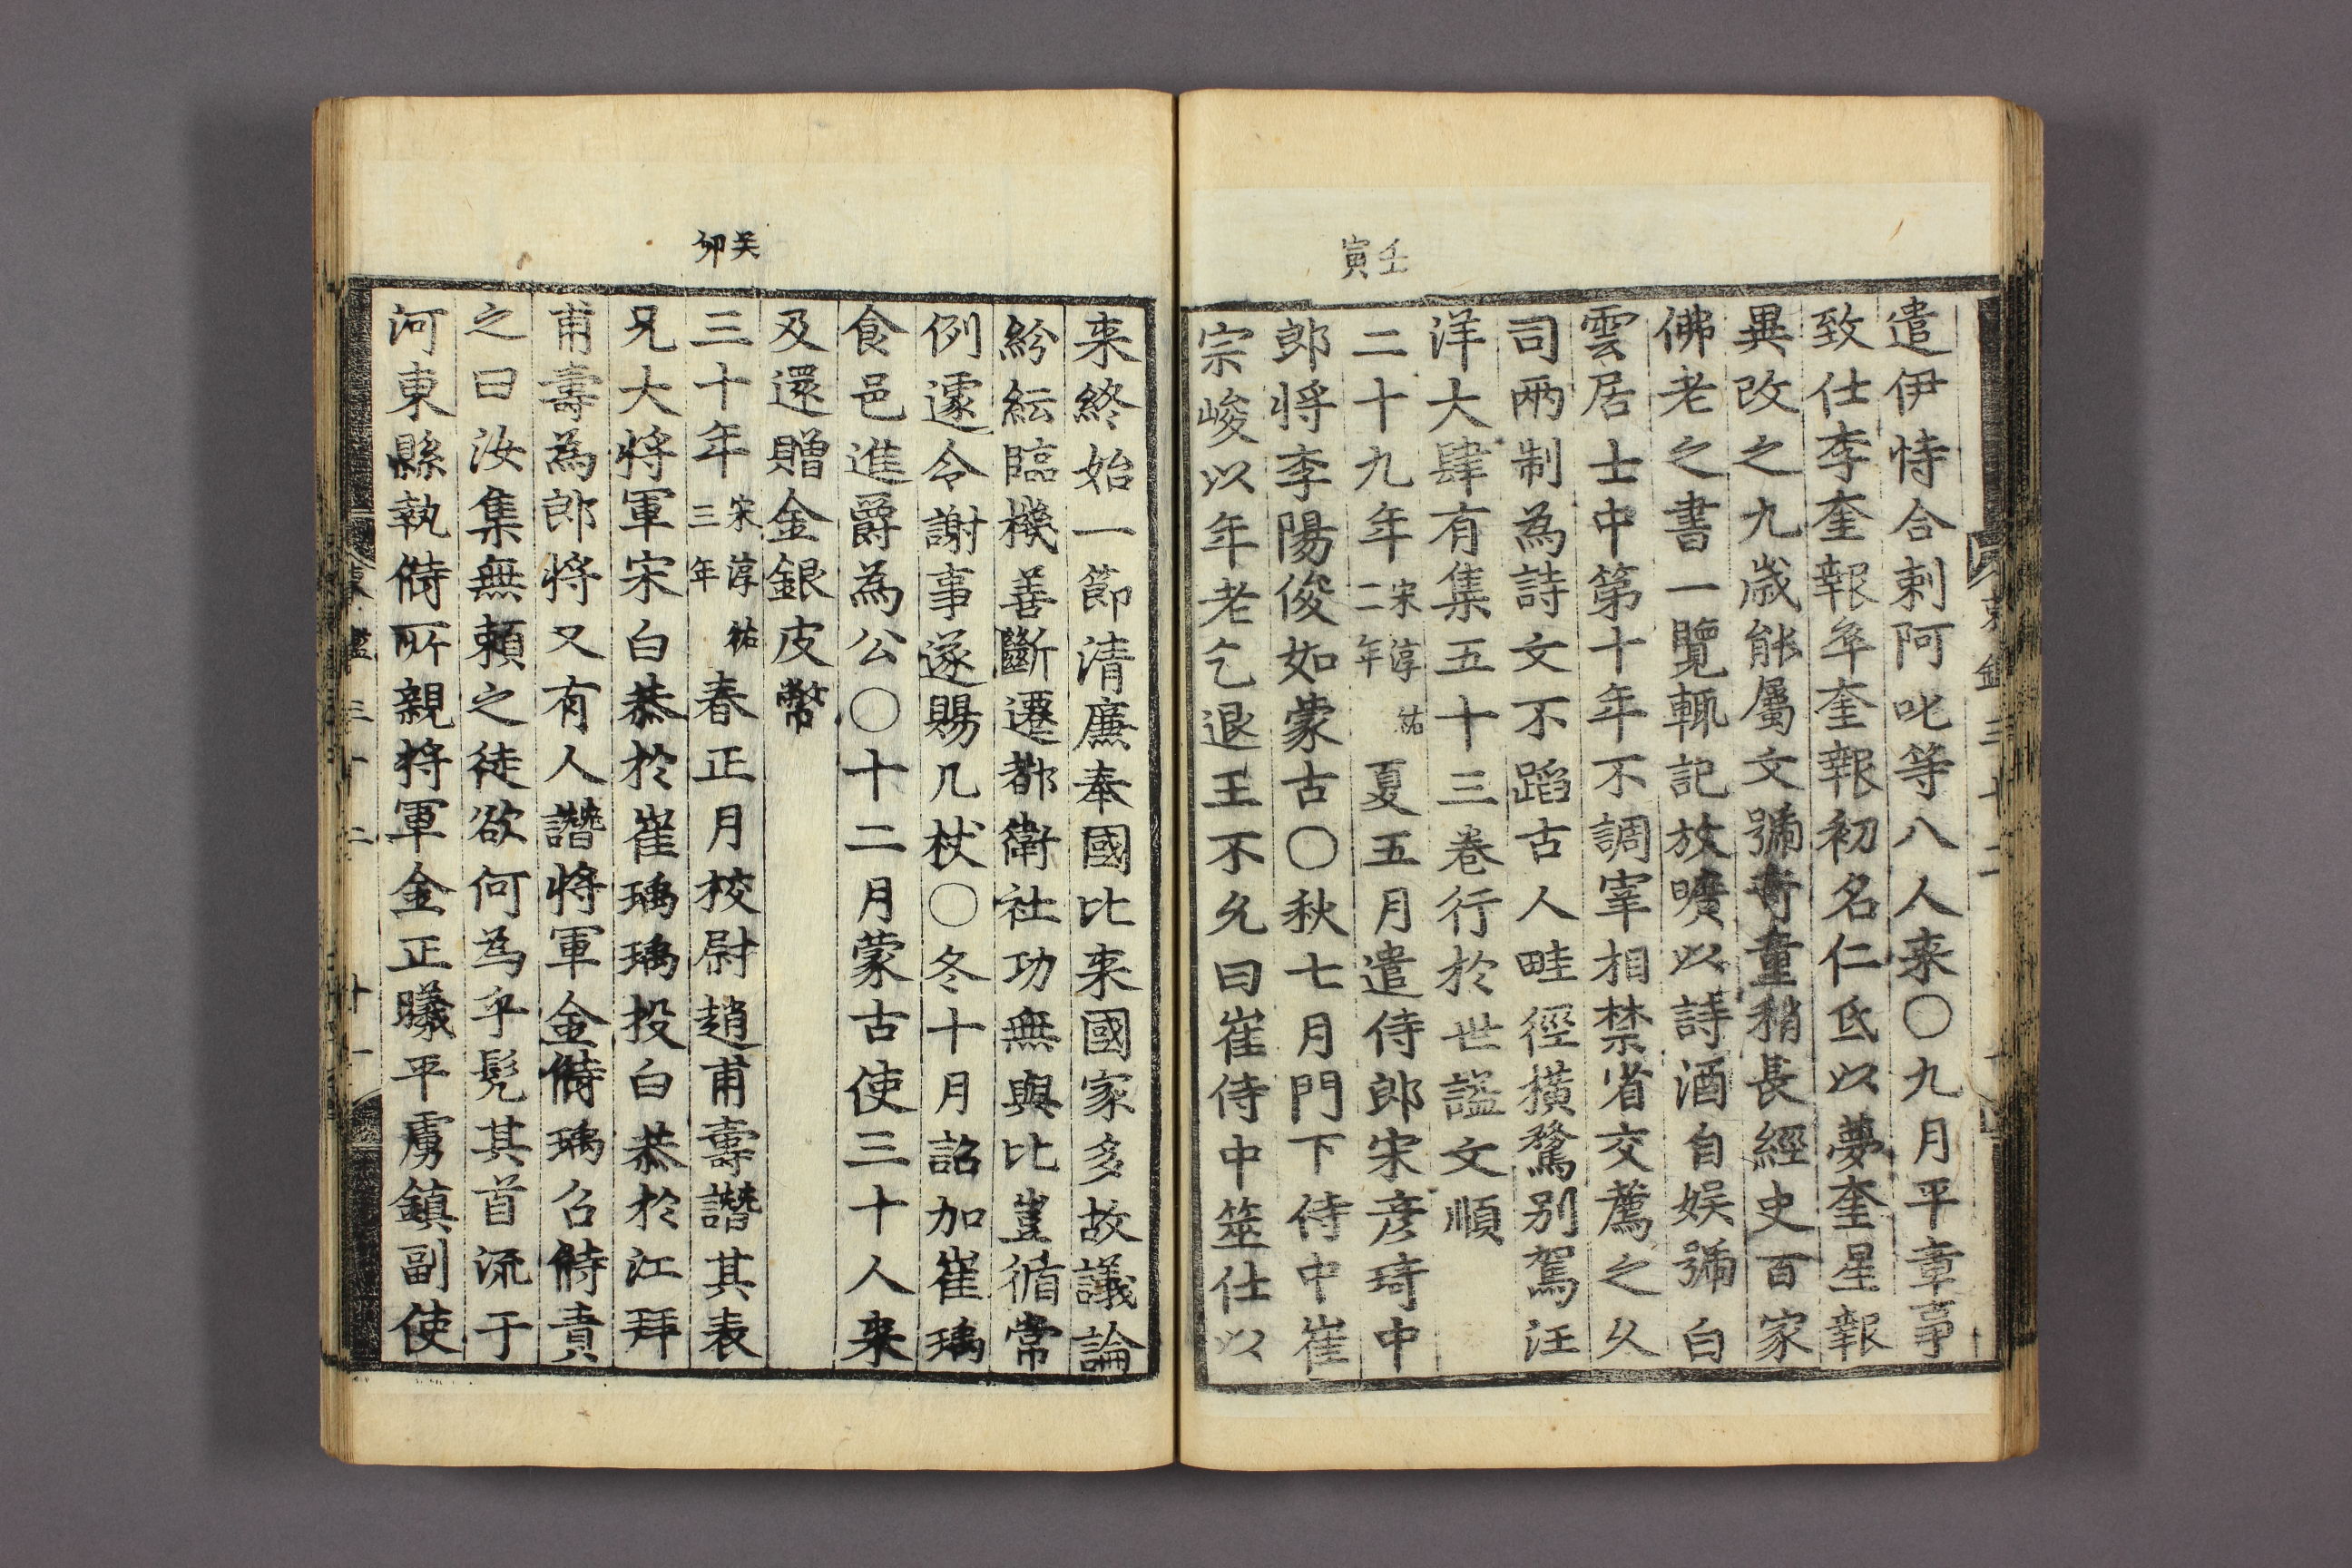 遣伊恃合剌阿叱等八人来〇九月平章事
致仕李奎報卒奎報初名仁氐以夢奎星報
異改之九歳能屬文號奇童稍長經史百家
佛老之書一覽輒記放曠以詩酒自娛號白
雲居士中第十年不調宰相禁省交薦之久
司兩制為詩文不蹈古人畦徑橫騖別駕汪
洋大肆有集五十三巻行於世謚文順
壬寅
二十九年宋淳祐二年夏五月遣侍郎宋彦琦中
郎将李陽俊如蒙古〇秋七月門下侍中崔
宗峻以年老乞退王不允曰崔侍中筮仕以
来終始一節清廉奉國比来國家多故議論
紛紜臨機善斷遷都衛社功無與比豈循常
例遽令謝事遂賜几杖〇冬十月詔加崔瑀
食邑進爵為公〇十二月蒙古使三十人来
及還贈金銀皮幣
癸卯
三十年宋淳祐三年春正月校尉趙甫壽譖其表
兄大将軍宋白恭於崔瑀瑀投白恭於江拜
甫壽為郎将又有人譖将軍金偫瑀召偫責
之曰汝集無賴之徒欲何為乎髡其首流于
河東縣執偫所親将軍金正曦平虜鎮副使
東鑑三十二
十一